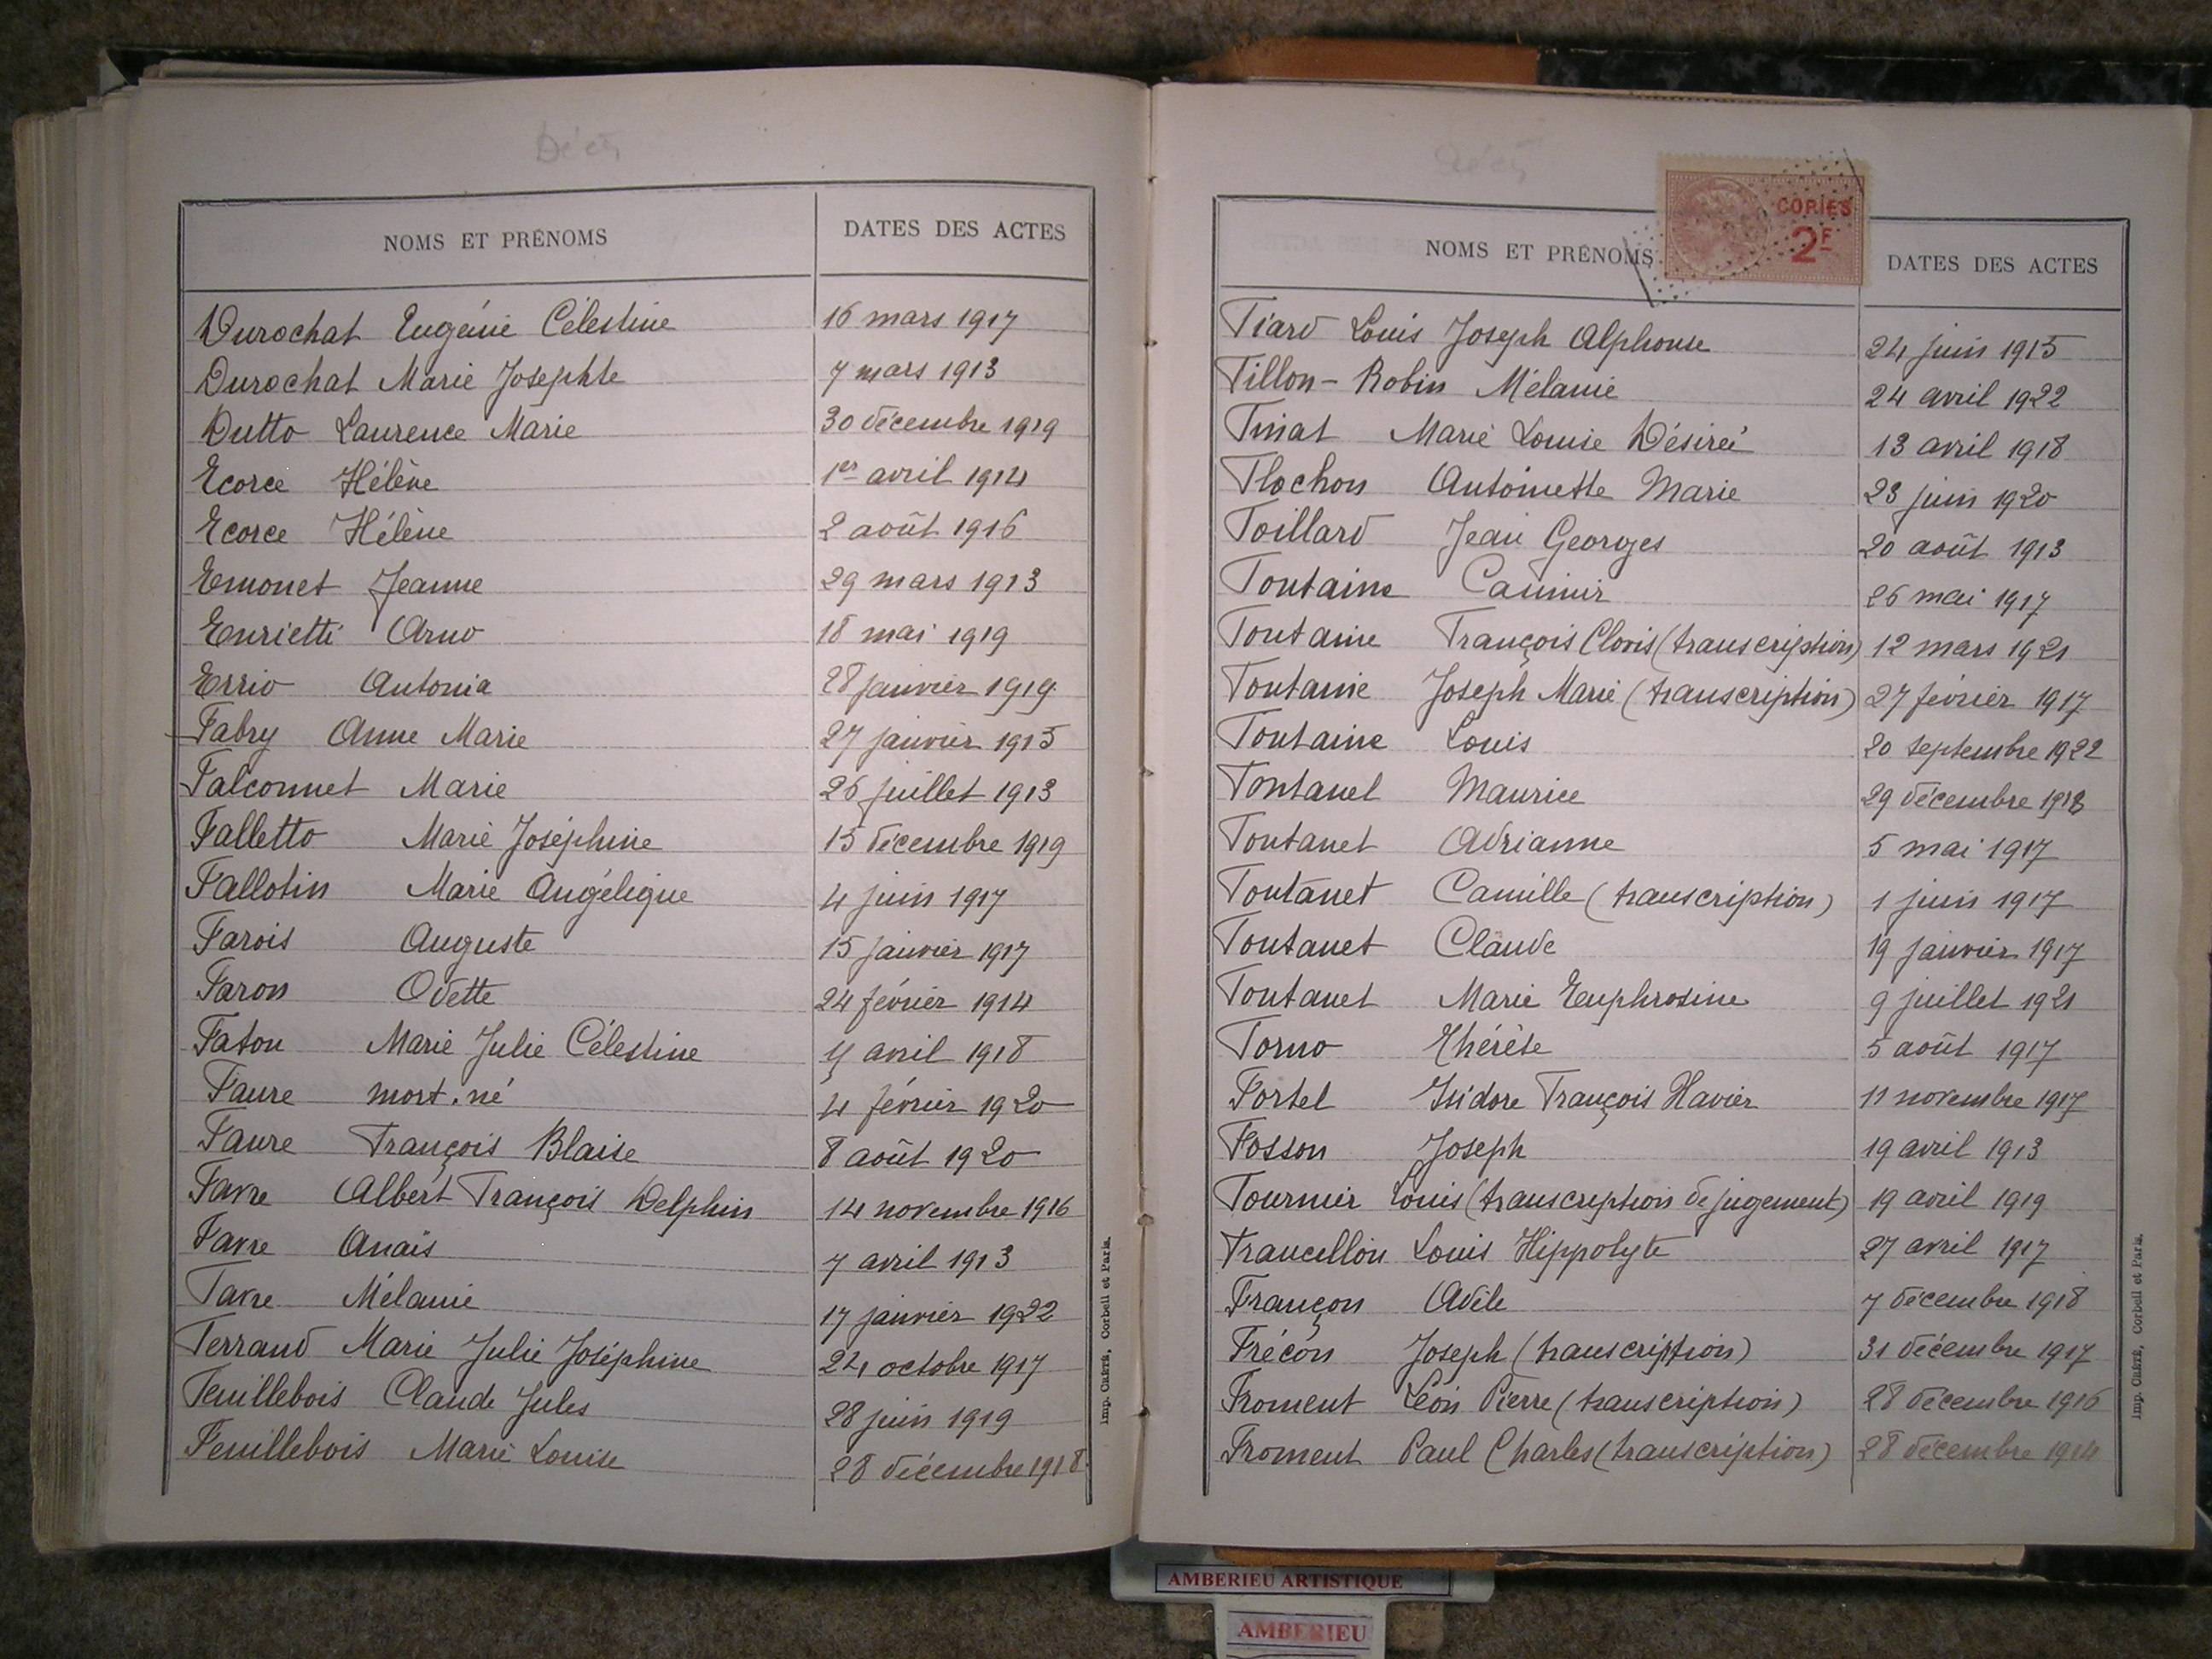 Décès
NOMS ET PRÉNOMS DATES DES ACTES
Durochat Eugénie Célestine 16 mars 1917
Durochat Marie Josephte 7 mars 1913
Dutto Laurence Marie 30 décembre 1919
Ecorce Hélène 1er avril 1914
Ecorce Hélène 2 août 1916
Emonet Jeanne 29 mars 1913
Enrietti Arno 18 mai 1919
Errio Antonia 28 janvier 1919
Fabry Anne Marie 27 janvier 1915
Falconnet Marie 26 juillet 1913
Falletto Marie Joséphine 15 décembre 1919
Fallotin Marie Angélique 4 juin 1917
Farois Auguste 15 janvier 1917
Faron Odette 24 février 1914
Faton Marie Julie Célestine avril 1918
Faure mort-né 4 février 1920
Faure François Blaise 8 août 1920
Favre Albert François Delphin 14 novembre 1916
Favre Anaïs 7 avril 1913
Favre Mélanie 17 janvier 1922
Ferrand Marie Julie Joséphine 24 octobre 1917
Feuillebois Claude Jules 28 juin 1919
Feuillebois Marie Louise 28 décembre 1918
Imp. CRÉTÉ, Corbeil et Paris.
Décès
COPIES
2F
NOMS ET PRÉNOMS DATES DES ACTES
Fiard Louis Joseph Alphonse 24 juin 1915
Fillon-Robin Mélanie 24 avril 1922
Finat Marie Louise Désirée 13 avril 1918
Flochon Antoinette Marie 23 juin 1920
Foillard Jean Georges 20 août 1913
Fontaine Casimir 26 mai 1917
Fontaine François Clovis (transcription) 12 mars 1921
Fontaine Joseph Marie (transcription) 27 février 1917
Fontaine Louis 20 septembre 1922
Fontanel Maurice 29 décembre 1918
Fontanet Adrianne 5 mai 1917
Fontanet Camille (transcription) 1 juin 1917
Fontanet Claude 19 janvier 1917
Fontanet Marie Euphrosine 9 juillet 1921
Forno Thérèse 5 août 1917
Fortel Isidore François Xavier 11 novembre 1917
Fosson Joseph 19 avril 1913
Fournier Louis (transcription de jugement) 19 avril 1919
Francillon Louis Hippolyte 27 avril 1917
Françon Adèle 7 décembre 1918
Frécon Joseph (transcription) 31 décembre 1917
Froment Léon Pierre (transcription) 28 décembre 1916
Froment Paul Charles (transcription) 28 décembre 1914
Imp. CRÉTÉ, Corbeil et Paris.
AMBERIEU ARTISTIQUE
AMBERIEU